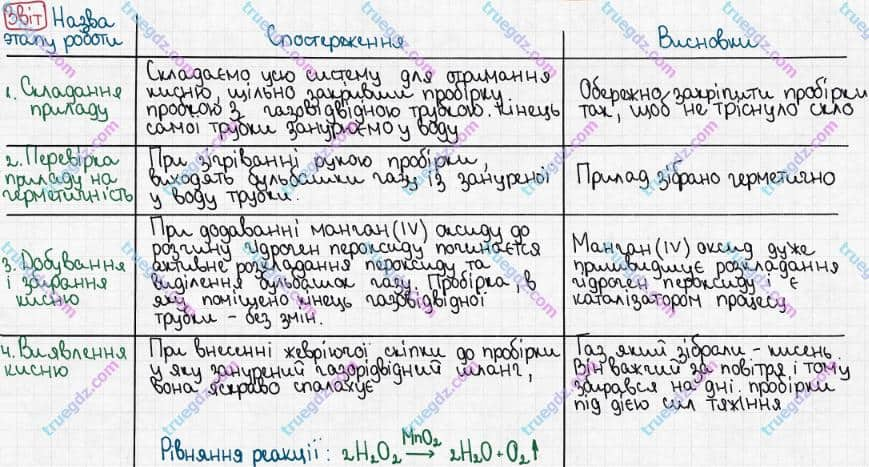 Звіт
Назва
етапу роботи
Спостереження
Висновки
1. Складання
приладу
Складаємо усю систему для отримання
кисню, щільно закривши пробірку
пробкою з газовідвідною трубкою. Кінець
самої трубки занурюємо у воду
Обережно закріпити пробірки
так, щоб не тріснуло скло
2. Перевірка
приладу на
герметичність
При зігріванні рукою пробірки,
виходять бульбашки газу із зануреної
у воду трубки.
Прилад зібрано герметично
3. Добування
і збирання
кисню
При додаванні манган (IV) оксиду до
розчину гідроген пероксиду починається
активне розкладання пероксиду та
виділення бульбашок газу. Пробірка, в
яку поміщено кінець газовідвідної
трубки - без змін.
Манган (IV) оксид дуже
пришвидшує розкладання
гідроген пероксиду - є
каталізатором процесу
4. Виявлення
кисню
При внесенні жевріючої скіпки до пробірки
у яку занурений газовідвідний шланг,
вона яскраво спалахує
Газ який зібрали - кисень
Він важчий за повітря і тому
збирався на дні пробірки
під дією сил тяжіння
Рівняння реакції: 2H₂O₂ MnO₂→ 2H₂O + O₂↑
truegdz.com